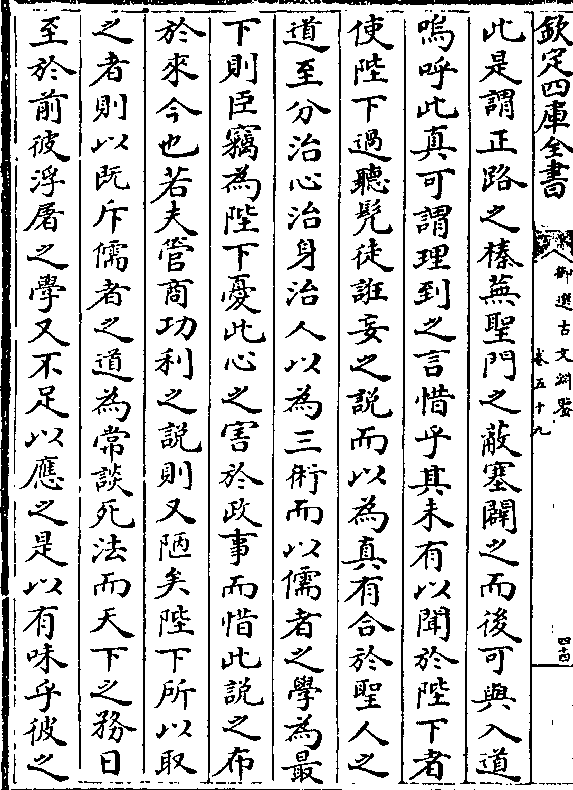 欽定四庫全書
御選古文淵鑒
卷五十九
四十四
此是謂正路之榛蕪聖門之蔽塞闢之而後可與入道
嗚呼此真可謂理到之言惜乎其未有以聞於陛下者
使陛下過聽髡徒誑妄之說而以為真有合於聖人之
道至分治心治身治人以為三術而以儒者之學為最
下則臣竊為陛下憂此心之害於政事而惜此說之布
於來今也若夫管商功利之說則又陋矣陛下所以取
之者則以既斥儒者之道為常談死法而天下之務日
至於前彼浮屠之學又不足以應之是以有味乎彼之